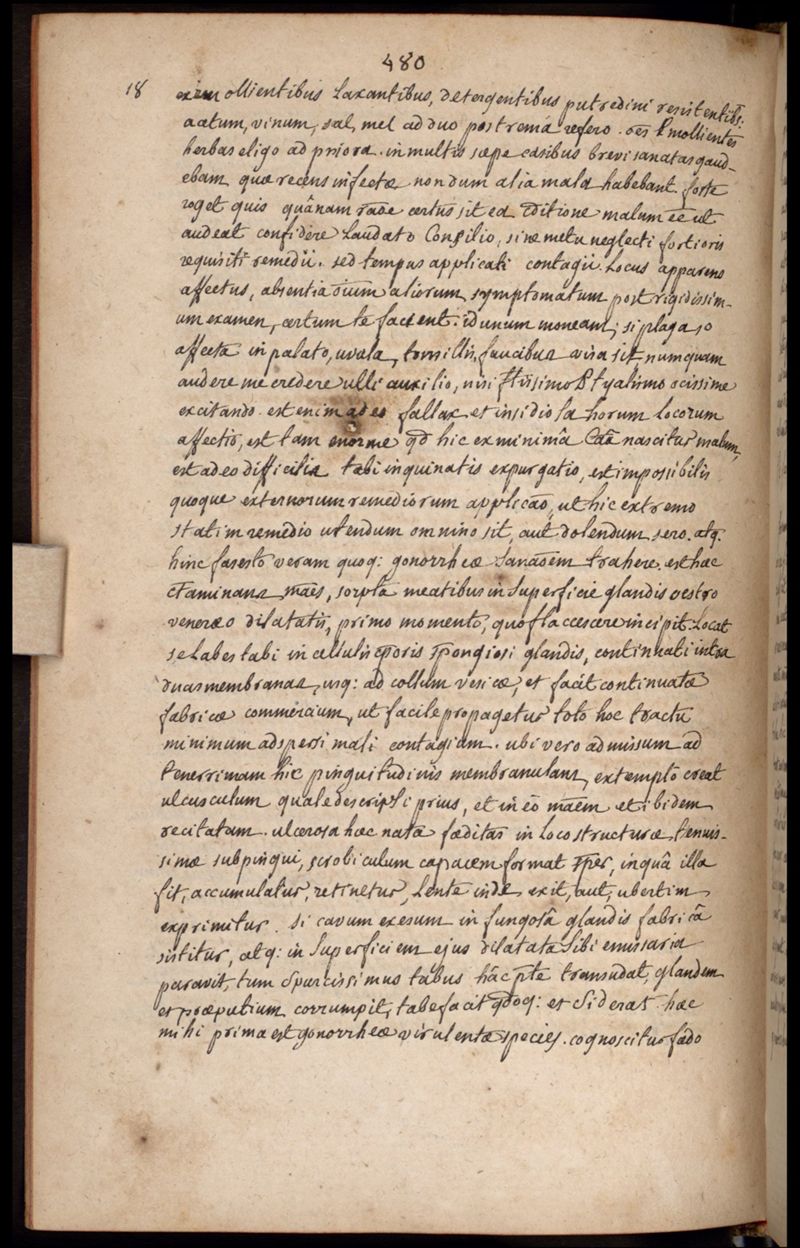 480
18
ollientibus laxantibus, detergentibus putredini resistentib̄s.
acetum, vinum, sal, mel ad duo postrema refero. oēs Emollientes
herbas eligo ad priora. in multis sæpe casibus brevi sanatas gaud-
ebam quæ recens infectæ nondum alia mala habebant. forte
roget quis quânam raōe certus sit ea ditione malum eē ut
audeat confidere laudato Consilio, sine metu neglecti fortioris
requisiti remedii. sed tempus applicati contagii. Locus apparens
affectus, absentia oīum aliorum symptomatum post rigidissim-
um examen, certum te facient. id unum moneam, si plaga so
affecta in palato, uvula, tonsillis, faucibus visa sit numquam
audere me credere ulli auxilio, nisi ftissimo Ptyalismo ocissime
excitando. est enim adeo fallax et insidiosa horum locorum
affectio, est tam enorme qd hic ex minimâ Caā nascitur malum,
est adeo difficilis tabi inquinatis expurgatio, est impossibilis
quoque externorum remediorum applicāo, ut hic extremo
statim remedio utendum omnino sit, aut dolendum sero. atq:
hinc fas esto veram quoq: gonorrheæ sanaōem trahere. est hæc
ctaminans māes, sorpta meatibus in superficie glandis oestro
venereo dilatatis, primo momento, quo flaccescere incipit. Locat
se labes tabi in cellulis cporis spongiosi glandis, continuati intra
duas membranas, usq: ad collum vesicæ, et facit continuatæ
fabricæ commercium, ut facile propagetur toto hoc tractu
minimum adspersi mali contagium. ubi vero admissum ad
tenerrimam hic pinguitudinis membranulam, extemplo creat
ulcusculum quale descripsi prius, et in eō māem et ibidem
recitatam. ulcerosa hæc nata fæditas in loco structuræ tenuis-
simæ subpingui, scrobiculum capacem format sper, in quâ illa
fit, accumulatur, retinetur, lente inde exit, aut, ubertim
exprimitur. si cavum exesum in fungosâ glandis fabricâ
sistitur, atq: in superficiem ejus dilatata sibi emissaria
paravit, tum spurcissimus tabus hâc pte transudat, glandem
et præputium corrumpit, tabefacit qdoq: et siderat. hæc
mihi prima est gonorrheæ virulentæ species. cognoscitur fædo